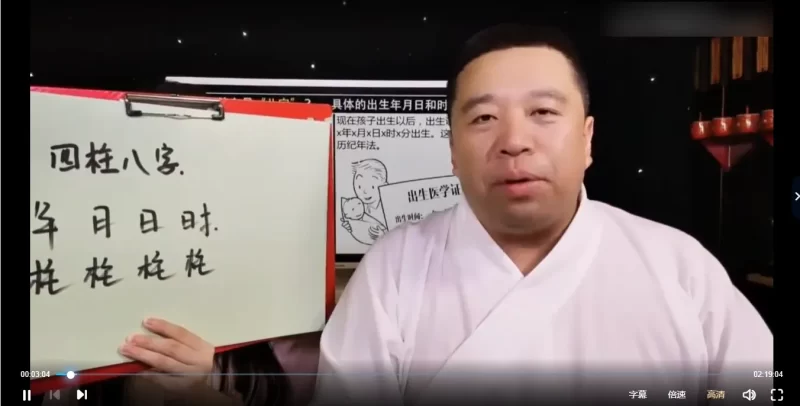 具体的出生年月日和时
现在孩子出生以后，出生
x年x月x日x时x分出生。这
历纪年法。
出生医学证
出生时间：
四柱八字.
年 月 日 时.
柱 柱 柱 柱
00:03:04
02:19:04
字幕 倍速 高清